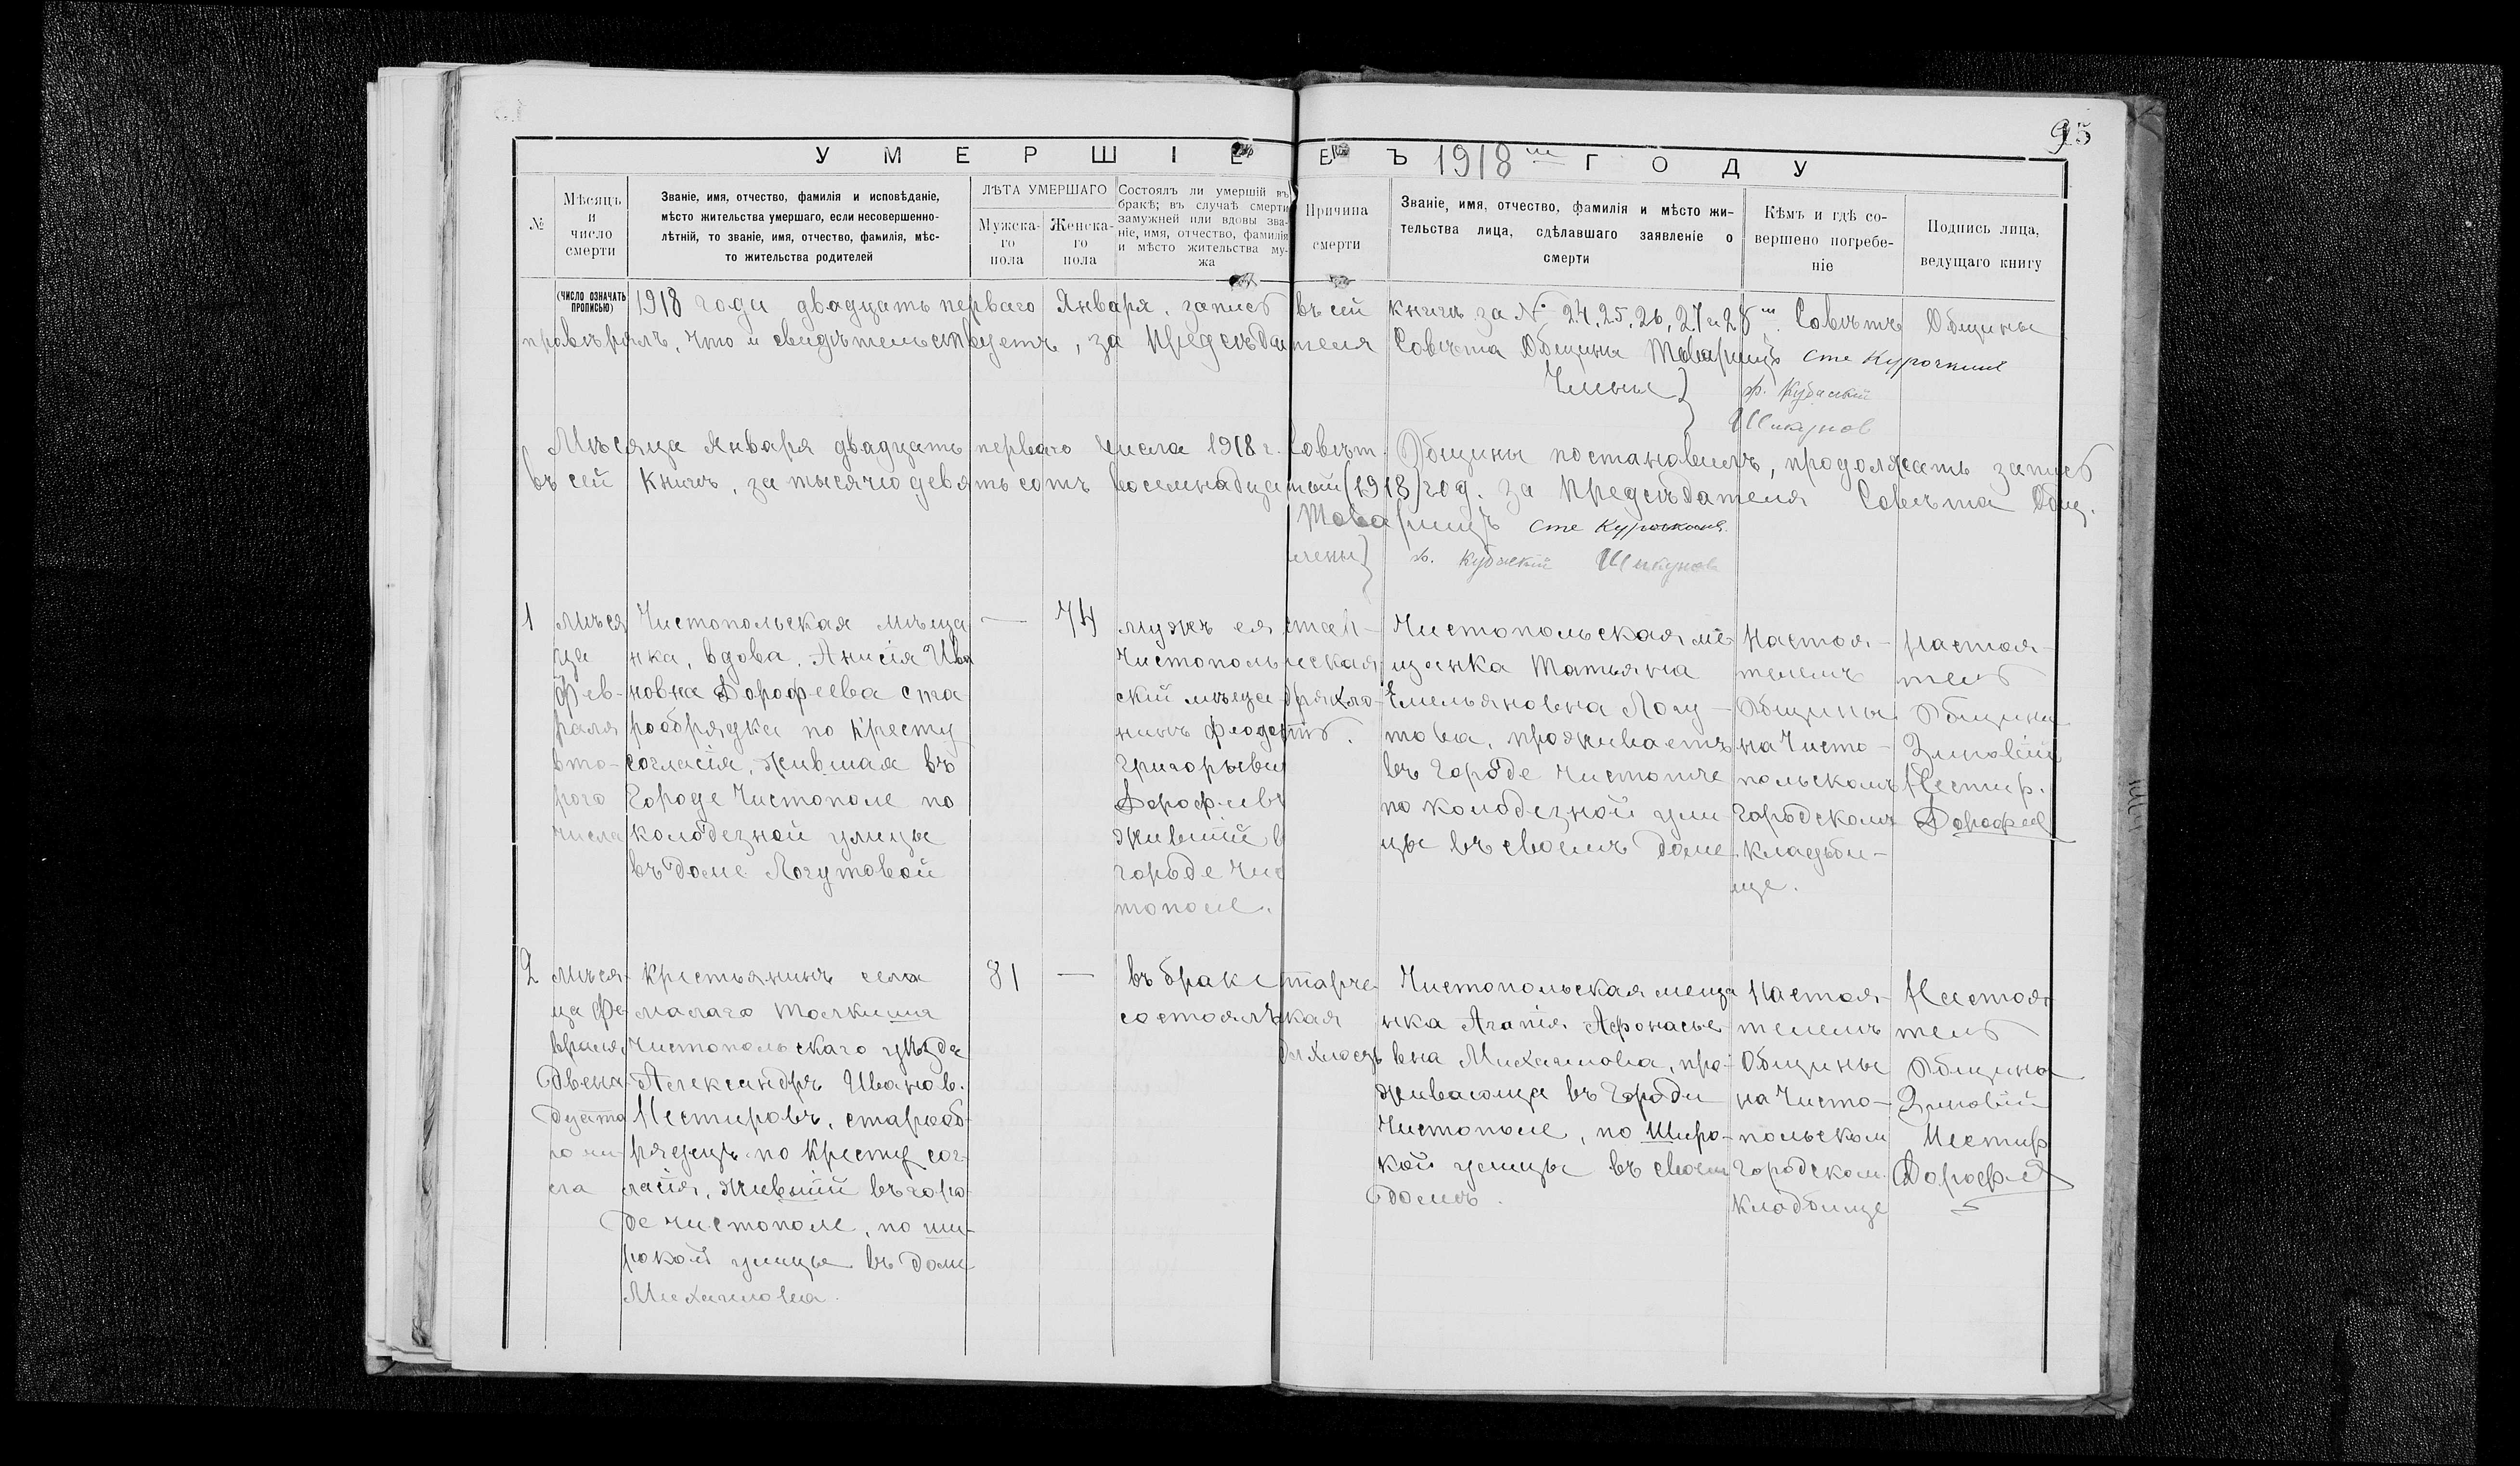 95
УМЕРШІЕ ВЪ 1918 ГОДУ
№
Мѣсяцъ
и
число
смерти
Званіе, имя, отчество, фамилія и исповѣданіе,
мѣсто жительства умершаго, если несовершенно-
лѣтній, то званіе, имя, отчество, фамилія, мѣс-
то жительства родителей
ЛѢТА УМЕРШАГО
Мужска-
го
пола
Женска-
го
пола
Состоялъ ли умершій въ
бракѣ; въ случаѣ смерти
замужней или вдовы зва-
ніе, имя, отчество, фамилія
и мѣсто жительства му-
жа
Причина
смерти
Званіе, имя, отчество, фамилія и мѣсто жи-
тельства лица, сдѣлавшаго заявленіе о
смерти
Кѣмъ и гдѣ со-
вершено погребе-
ніе
Подпись лица,
ведущаго книгу
(ЧИСЛО ОЗНАЧАТЬ
ПРОПИСЬЮ)
1918 года двадцать перваго Января, запись въ сей книгѣ за № 24, 25, 26, 27 и 28 Совѣтъ Общины
провѣрялъ, что и свидѣтельствуетъ, за Предсѣдателя Совѣта Общины Товарищъ Сте Курочкинъ
Члены} ф. Кубаский
Шикунов
Мѣсяца Января двадцать перваго числа 1918 г. Совѣт Общины постановилъ, продолжать запись
въ сей книгѣ, за тысячю девятьсотъ восемнадцатый (1918) год. за Предсѣдателя Совѣта Общ.
Товарищъ Сте Курочкинъ
члены} ф. Кубаский Шикунов
1
мѣся
ца
Фев-
раля
вто-
рого
числа
Чистопольская мѣща
нка, вдова, Анисія Ива
новна Дорофеева ста
рообрядка по Кресту
согласія, жившая въ
Городе Чистополе по
колодезной улицы
въ доме Логутовой
—
74
мужъ ея
Чистополь
ский мѣща
нинъ Феодо
Григорьеви
Дорофеевъ
живший в
городе Чис
тополе.
стап-
ческая
дряхло-
сть.
Чистопольская ме
щанка Татьяна
Емельяновна Логу-
това, проживаетъ
въ Городе Чистополе
по колодезной ули
цы въ своемъ доме
Настоя-
телемъ
Общины
на Чисто-
польскомъ
Городскомъ
кладби-
ще.
Настоя-
тель
Общины
Зиновій
Нестир.
Дорофеев
2
мѣся-
ца Фе-
враля
Двена
дцата
го чи-
сла
Крестьянинъ села
малаго Толкиша
Чистопольскаго уѣзда
Александръ Иванов.
Нестировъ, старооб-
рядецъ по Кресту сог-
ласія, живший въ горо-
де Чистополе, по ши-
рокой улицы въ доме
Михаиловна.
81
—
въ браке
состоялъ
старче
ская
дряхлость
Чистопольская меща
нка Агапія Афонасье
вна Михаилова, про-
живающа въ Городе
Чистополе, по Широ-
кой улицы въ своем
доме.
Настоя-
телемъ
Общины
на Чисто-
польском
Городском
Кладбище
Настоя-
тель
Общины
Зиновій
Нестир
Дорофеев